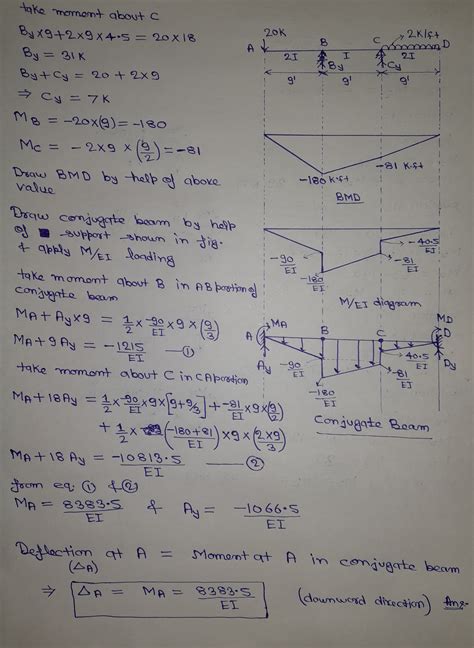 take moment about C
By×9+2×9×4.5 = 20×18
By = 31K
By+Cy = 20+2×9
⇒ Cy = 7K
MB = -20×(9) = -180
MC = -2×9×(9/2) = -81
Draw BMD by help of above
value
Draw conjugate beam by help
of support shown in fig.
+ apply M/EI loading
take moment about B in AB portion of
conjugate beam
MA+Ay×9 = 1/2×-90/EI×9×(9/3)
MA+9Ay = -1215/EI —①
take moment about C in CA portion
MA+18Ay = 1/2×-90/EI×9×[9+9/3]+-81/EI×9×(9/2)
+1/2×(-180+81/EI)×9×(2×9/3)
MA+18Ay = -10813.5/EI —②
from eq ① & ②
MA = 8383.5/EI & Ay = -1066.5/EI
Deflection at A = Moment at A in conjugate beam
(ΔA)
⇒ ΔA = MA = 8383.5/EI (downword direction) Ans.
20K
2K/ft
A
B
C
D
2I
I
2I
By
Cy
9'
9'
9'
-180 K.ft
-81 K.ft
BMD
-90/EI
-180/EI
-40.5/EI
-81/EI
M/EI diagram
MA
MD
A
B
C
D
Ay
Dy
-90/EI
-180/EI
40.5/EI
-81/EI
Conjugate Beam